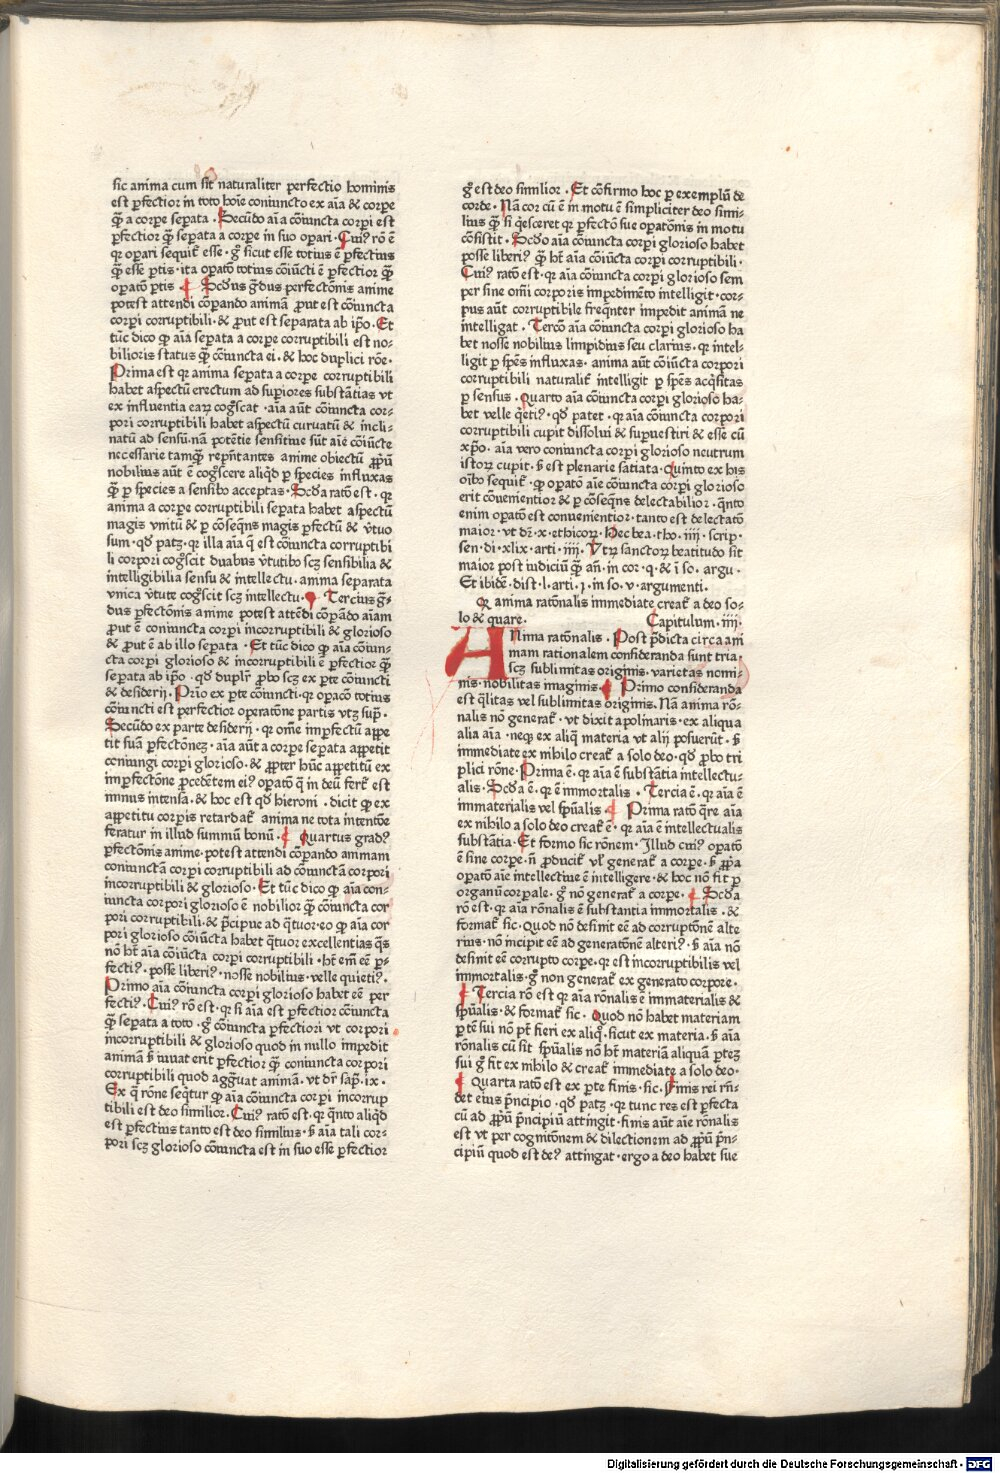 sic anima cum sit naturaliter perfectio hominis
est ꝑfectior in toto hoīe coniuncto ex aīa & corꝑe
qꝫ̄ a corꝑe seꝑata . Secūdo aīa cōiuncta corpi est
ꝑfectior qꝫ̄ seꝑata a corꝑe in suo oꝑari . Cuiꝰ rō ē
qꝛ oꝑari sequit̄ esse . gͦ sicut esse totius ē ꝑfectius
qꝫ̄ esse ꝑtis . ita oꝑatō totius cōiūcti ē ꝑfectior qꝫ̄
oꝑatō ꝑtis ¶ Scd̄us gͣdus perfectōnis anime
potest attendi cōꝑando animā ꝓut est cōiuncta
corpi corruptibili . & ꝓut est seꝑata ab ip̄o . Et
tūc dico ꝙ aīa seꝑata a corꝑe corruptibili est no-
bilioris status qꝫ̄ cōiuncta ei . & hoc duplici rōe .
Prima est qꝛ anima seꝑata a corꝑe corruptibili
habet aspectū erectum ad suꝑiores substātias vt
ex influentia eaꝝ cogͦscat . aīa aūt cōiuncta cor-
pori corruptibili habet aspectū curuatū & incli-
natū ad sensū . nā potētie sensitiue sūt aīe cōiūcte
necessarie tamqꝫ̄ rep̄ntantes anime obiectū ꝓpriū
nobilius aūt ē cogͦscere aliqd̄ ꝑ species influxas
qꝫ̄ ꝑ species a sensibꝰ acceptas . Scd̄a ratō est . qꝛ
anima a corꝑe corruptibili seꝑata habet aspectū
magis vnitū & ꝑ cōseqn̄s magis ꝑfectū & v̄tuo
sum . qd̄ patꝫ . qꝛ illa aīa q̄ est cōiuncta corruptibi
li corpori cogͦscit duabus v̄tutibꝰ scꝫ sensibilia &
intelligibilia sensu & intellectu . anima seꝑata
vnica v̄tute cogͦscit scꝫ intellectu . ¶ Tercius gͣ-
dus ꝑfectōnis anime potest attēdi cōꝑando aīam
ꝓut ē coniuncta corpi incorruptibili & glorioso
& ꝓut ē ab illo seꝑata . Et tūc dico ꝙ aīa cōiun-
cta corpi glorioso & incorruptibili ē ꝑfectior qꝫ̄
seꝑata ab ip̄o . qd̄ duplr̄ ꝓbo scꝫ ex ꝑte cōiuncti
& desiderij . Prīo ex ꝑte cōiuncti . qꝛ oꝑaco totius
cōiuncti est perfectior oꝑatōne partis vtꝫ supͣ .
Secūdo ex parte desiderij . qꝛ om̄e imꝑfectū appe
tit suā ꝑfectōneꝫ . aīa aūt a corꝑe seꝑata appetit
coniungi corpi glorioso . & ꝓpter hūc appetitū ex
imꝑfectōne ꝓcedētem eiꝰ oꝑatō q̄ in deū fert̄ est
minus intensa . & hoc est qd̄ hieroni . dicit ꝙ ex
appetitu corpis retardat̄ anima ne tota intentōe
feratur in illud summū bonū . ¶ Quartus gradꝰ
ꝑfectōnis anime . potest attendi cōꝑando animam
coniunctā corpi corruptibili ad cōiunctā corpori
incorruptibili & glorioso . Et tūc dico ꝙ aīa con-
iuncta corpi glorioso ē nobilior qꝫ̄ cōiuncta cor
pori corruptibili . & p̄cipue ad qͣtuor . eo ꝙ aīa cor
pori glorioso cōiūcta habet qͣtuor excellentias qͣs
nō hꝫ̄ aīa cōiūcta corpi corruptibili . hꝫ̄ em̄ eē ꝑ-
fectiꝰ . posse liberiꝰ . nosse nobilius . velle quietiꝰ .
Primo aīa cōiuncta corpi glorioso habet eē per
fectiꝰ . Cuiꝰ rō est . qꝛ si aīa est ꝑfectior cōiuncta
qꝫ̄ seꝑata a toto . gͦ cōiuncta ꝑfectiori vt corpori
incorruptibili & glorioso quod in nullo impedit
animā sꝫ iuuat erit ꝑfectior qꝫ̄ coniuncta corpori
corruptibili quod aggͣuat animā . vt dr̄ sap̄ . ix .
Ex q̄ rōne seqͥtur ꝙ aīa cōiuncta corpi incorrup
tibili est deo similior . Cuiꝰ ratō est . qꝛ qͣnto aliqd̄
est ꝑfectius tanto est deo similius . sꝫ aīa tali cor-
pori scꝫ glorioso cōiuncta est in suo esse ꝑfectior
gͦ est deo similior . Et cōfirmo hoc ꝑ exemplū de
corde . Nā cor cū ē in motu ē simpliciter deo simi-
lius qꝫ̄ si qͥesceret qꝛ ꝑfectō siue oꝑatōnis in motu
cōsistit . Scd̄o aīa cōiuncta corpi glorioso habet
posse liberiꝰ qꝫ̄ hꝫ̄ aīa cōiūcta corpi corruptibili .
Cuiꝰ ratō est . qꝛ aīa cōiuncta corpi glorioso sem
per sine om̄i corporis impedimēto intelligit . cor-
pus aūt corruptibile freqn̄ter impedit animā ne
intelligat . Tercō aīa cōiuncta corpi glorioso ha
bet nosse nobilius limpidius seu clarius . qꝛ intel-
ligit ꝑ spēs influxas . anima aūt cōiūcta corpori
corruptibili naturalit̄ intelligit ꝑ spēs acqͥsitas
ꝑ sensus . Quarto aīa cōiuncta corpi glorioso ha-
bet velle qͥetiꝰ . qd̄ patet . qꝛ aīa cōiuncta corpori
corruptibili cupit dissolui & suꝑuestiri & esse cū
xp̄o . aīa vero coniuncta corpi glorioso neutrum
istoꝝ cupit . sꝫ est plenarie satiata . Quinto ex his
oībꝰ sequit̄ . ꝙ oꝑatō aīe cōiuncta corpi glorioso
erit cōuenientior & ꝑ cōseqn̄s delectabilior . qͣnto
enim oꝑatō est conuenientior . tanto est delectatō
maior . vt dꝛ̄ . x . ethicoꝝ . Hec bea . tho . iiij . scrip .
sen . di . xlix . arti . iiij . Vtꝝ sanctoꝝ beatitudo sit
maior post iudiciū qꝫ̄ an̄ . in cor . q . & ī so . argu .
Et ibidē . dist . l . arti . j . in so . v . argumenti .
Qꝛ anima ratōnalis immediate creat̄ a deo so-
lo & quare . Capitulum . iiij .
ANima ratōnalis . Post p̄dicta circa ani
mam rationalem consideranda sunt tria .
scꝫ sublimitas originis . varietas nomi-
nis . nobilitas imaginis . ¶ Primo consideranda
est qͣlitas vel sublimitas originis . Nā anima rō-
nalis nō generat̄ . vt dixit apolinaris . ex aliqua
alia aīa . neqꝫ ex aliq̄ materia vt alij posuerūt . sꝫ
immediate ex nihilo creat̄ a solo deo . qd̄ ꝓbo tri
plici rōne . Prima ē . qꝛ aīa ē substātia intellectu-
alis . Scd̄a ē . qꝛ ē immortalis . Tercia ē . qꝛ aīa ē
immaterialis vel spūalis . ¶ Prima ratō qͣre aīa
ex nihilo a solo deo creat̄ ē . qꝛ aīa ē intellectualis
substātia . Et formo sic rōnem . Illud cuiꝰ oꝑatō
ē sine corꝑe . nō ꝓducit̄ vl̄ generat̄ a corꝑe . sꝫ ꝓpͥa
oꝑatō aīe intellectiue ē intelligere . & hoc nō fit ꝑ
organū corꝑale . gͦ nō generat̄ a corꝑe . ¶ Scd̄a
rō est . qꝛ aīa rōnalis ē substantia immortalis . &
format̄ sic . Quod nō desinit eē ad corruptōnē alte
rius . nō incipit eē ad generatōnē alteriꝰ . sꝫ aīa nō
desinit eē corrupto corꝑe . qꝛ est incorruptibilis vel
immortalis . gͦ non generat̄ ex generato corpore .
¶ Tercia rō est . qꝛ aīa rōnalis ē immaterialis &
spūalis . & format̄ sic . Quod nō habet materiam
ꝑtē sui nō pt̄ fieri ex aliqͦ . sicut ex materia . sꝫ aīa
rōnalis cū sit spūalis nō hꝫ̄ materiā aliquā ꝑteꝫ
sui gͦ fit ex nihilo & creat̄ immediate a solo deo .
¶ Quarta ratō est ex ꝑte finis . sic . Finis rei rn̄-
det eius pͥncipio . qd̄ patꝫ . qꝛ tunc res est ꝑfecta
cū ad ꝓpͥū pͥncipiū attingit . finis aūt aīe rōnalis
est vt per cognitōnem & dilectionem ad ꝓpͥū pͥn-
cipiū quod est deꝰ attingat . ergo a deo habet sue
Digitalisierung gefördert durch die Deutsche Forschungsgemeinschaft - DFG